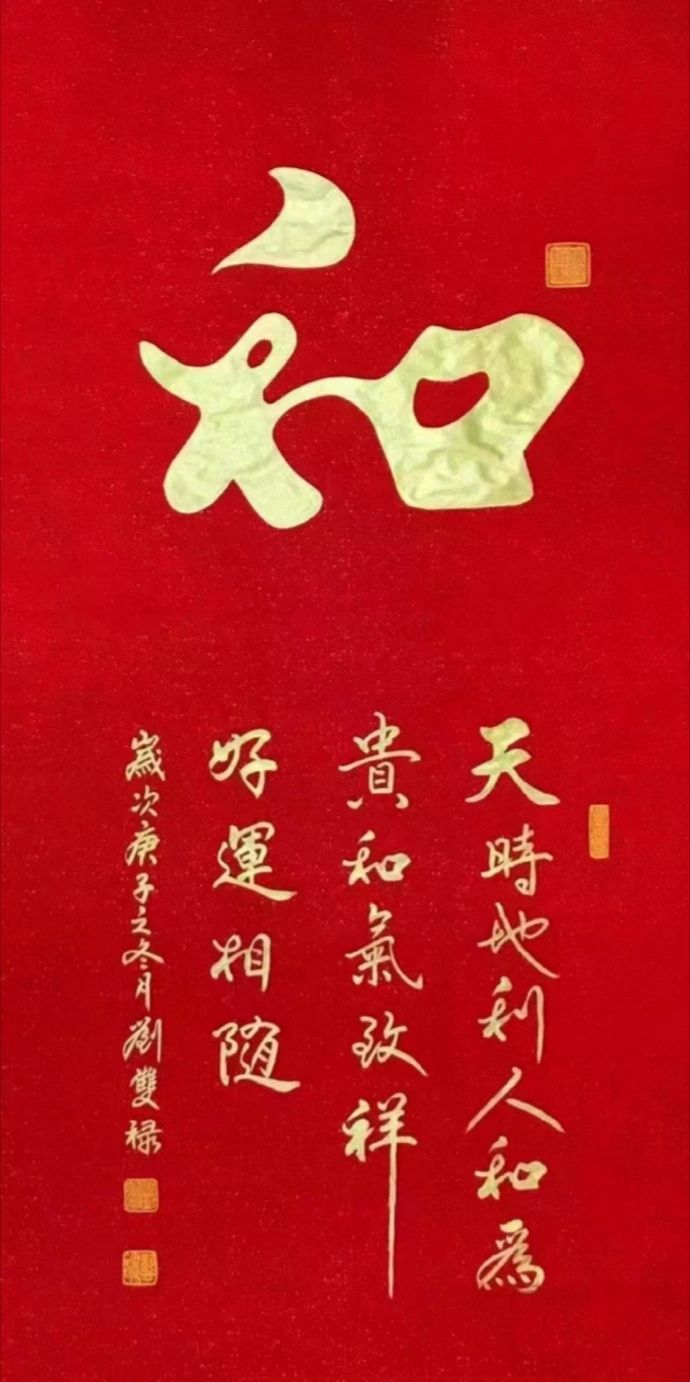 和
天時地利人和為
貴和氣致祥
好運相随
歲次庚子之冬月劉雙禄